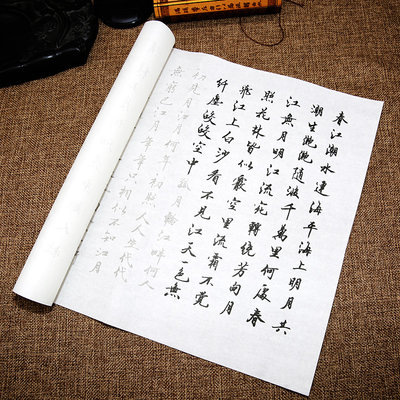 春江潮水連海平海上明月共
潮生灩灩隨波千萬里何處春
江無月明江流宛轉繞芳甸月
照花林皆似霰空里流霜不覺
飛江上白沙看不見江天一色無
纖塵皎皎空中孤月輪江畔何人
初見月江月何年初照人人生代代
無窮已江月年年只相似不知江月